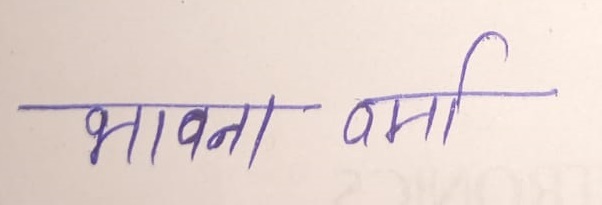 भावना वर्मा